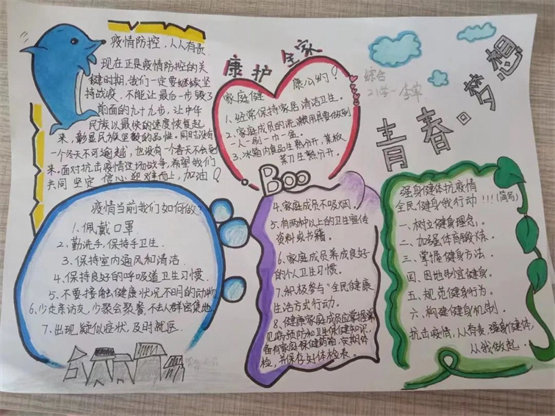 疫情防控,人人有责
现在正是疫情防控的关
键时期,我们一定要继续坚
持战疫,不能让最后一步毁了
前面的九十九步,让中华
民族以最快的速度恢复起
来,彰显民族坚毅的品德,同时没有
一个冬天不可逾越,也没有一个春天不会
来,面对抗击疫情这场战争,希望我们
共同坚定信心,迎难而上,加油!
康护全家
家庭健康公约
1.经常保持家居清洁卫生。
2.家庭成员的洗漱用具要做到
一人一刷一巾一盆。
3.冰箱内食品生熟分开,菜板
菜刀生熟分开。
Boo
4.家庭成员不吸烟。
5.有两种以上的卫生宣传
资料或书籍。
6.家庭成员养成良好
的个人卫生习惯。
7.积极参与"全民健康
生活方式行动。
8.健康家庭成员应掌握常
见病预防和卫生保健知识,
备有家庭保健药箱,定期体
检,并保存好体检表。
综合
青春。梦想
疫情当前我们如何做:
1.佩戴口罩
2.勤洗手,保持手卫生.
3.保持室内通风和清洁
4.保持良好的呼吸道卫生习惯.
5.不要接触健康状况不明的动物
6.少走亲访友,少聚会聚餐,不去人群密集地.
7.出现疑似症状,及时就医
强身健体抗疫情
全民健身我行动!!!
一.树立健身理念。
二.加强体育锻炼。
三.掌握健身方法。
四.因地制宜健身。
五.规范健身行为。
六.构建健身的机制。
抗击疫情,人人有责,强身健体,
从我做起。